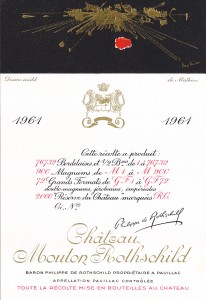 Dessin inédit de Mathieu
1961 1961
Cette récolte a produit:
76732 Bordelaises et 1/2 Bses de 1 à 76732
900 Magnums de M 1 à M 900
72 Grands Formats de GF1 à GF72
double-magnums, jéroboams, impériales
2000 "Réserve du Château" marquées R.C.
Ci, No
Philippe de Rothschild
Château
Mouton Rothschild
BARON PHILIPPE DE ROTHSCHILD PROPRIÉTAIRE A PAUILLAC
APPELLATION PAUILLAC CONTRÔLÉE
TOUTE LA RÉCOLTE MISE EN BOUTEILLES AU CHÂTEAU